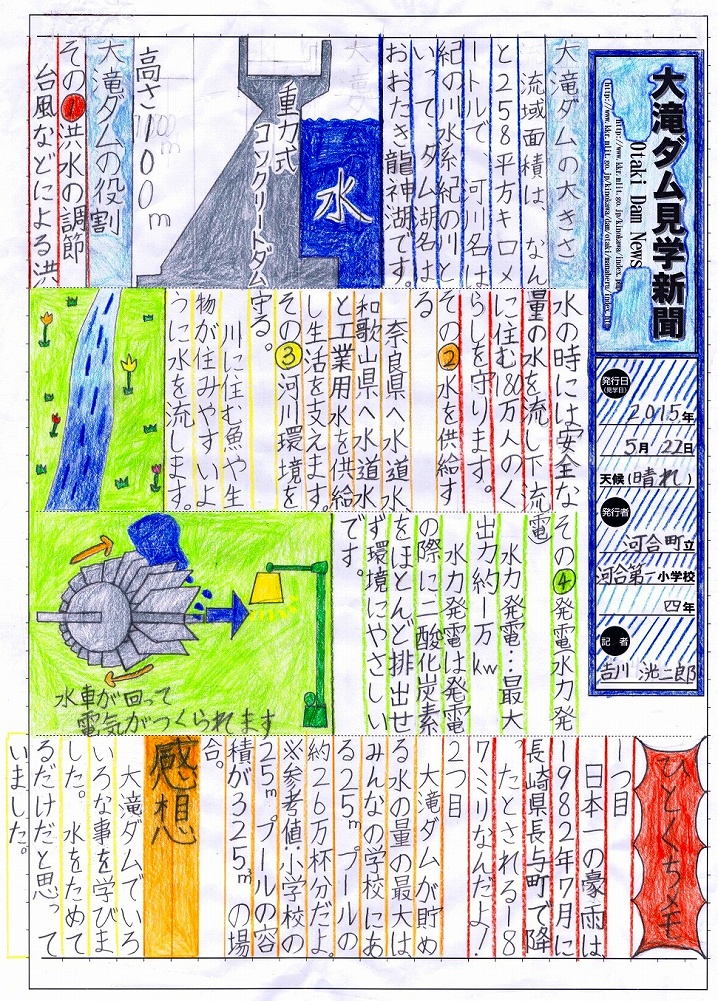 大滝ダム見学新聞
Otaki Dam News
発行日
(見学日)
2015年
5月22日
天候(晴れ)
発行者
河合町立
河合第一小学校
四年
記者
吉川 洸二郎
大滝ダムの大きさ
流域面積は、なん
と258平方キロメ
ートルで、河川名は
紀の川水系紀の川と
いって、ダム湖名は
おおたき龍神湖です。
水
重力式
コンクリートダム
高さ100m
大滝ダムの役割
その1洪水の調節
台風などによる洪
水の時には安全な
量の水を流し下流
に住む180万人のく
らしを守ります。
その2水を供給す
る
奈良県へ水道水、
和歌山県へ水道水
と工業用水を供給
し生活を支えます。
その3河川環境を
守る。
川に住む魚や生
物が住みやすいよ
うに水を流します。
その4発電水力発
電
水力発電…最大
出力約1万kw
水力発電は発電
の際に二酸化炭素
をほとんど排出せ
ず環境にやさしい
です。
水車が回って
電気がつくられます
ひとくちメモ
1つ目
日本一の豪雨は、
1982年7月に
長崎県長与町で降
ったとされる18
7ミリなんだよ!
2つ目
大滝ダムが貯め
る水の量の最大は、
みんなの学校にあ
る25mプールの
約26万杯分だよ。
※参考値:小学校の
25mプールの容
積が325m³の場
合。
感想
大滝ダムでいろ
いろな事を学びま
した。水をためて
るだけだと思って
いました。